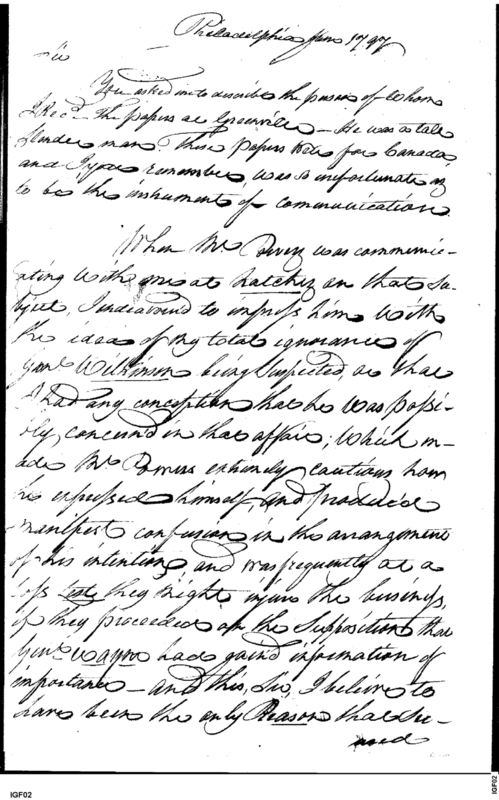 Philadelphia Jan 1797
You asked me to describe the person of Whom
I Recd. The papers at Greenville — He was a tall
slender man, These papers was for Canada,
and I you remember, was so unfortunate as
to be the instrument of communication.
When Mr. Power was communic-
ating with me at Natchez on that Su-
bject, I endeavourd to impress him with
the idea of my total ignorance of
Genl. Wilkinson being Suspected, or that
I had any conception that he was possi-
bly, concernd in that affair; which m-
ade Mr. Powers extremly cautious how
he expressed himself, and produced
manifest confusion in the arrangement
of his intentions, and was frequently at a
loss they might injure the business,
if they proceeded on the Supposition that
Genl. Wayne had gaind information of
importance — and this, Sir, I believe to
have been the only Reason that Se-
IGF02
IGF02